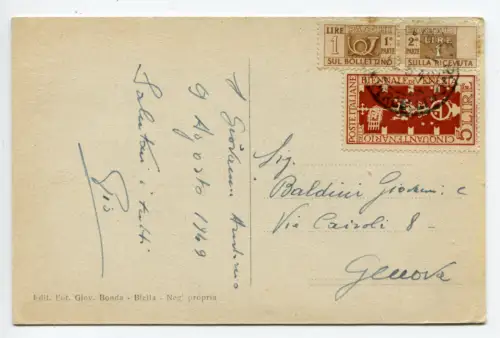 LIRE
1
1ª
PARTE
SUL BOLLETTINO
2ª
PARTE
LIRE
1
SULLA RICEVUTA
POSTE ITALIANE
BIENNALE di VENEZIA
CINQUANTENARIO
5 LIRE
S. Giovanni Andorno
9 Agosto 1949
Saluti a tutti
Pio
Sig.
Baldini Giovanni e
Via Cairoli 8 -
Genova
Edit. Fot. Giov. Bonda - Biella - Neg. propria